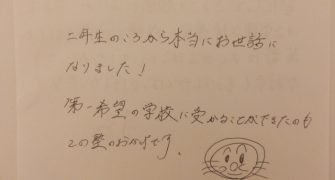 二年生のころから本当にお世話に
なりました！
第一希望の学校に受かることができたのも
この塾のおかげです。